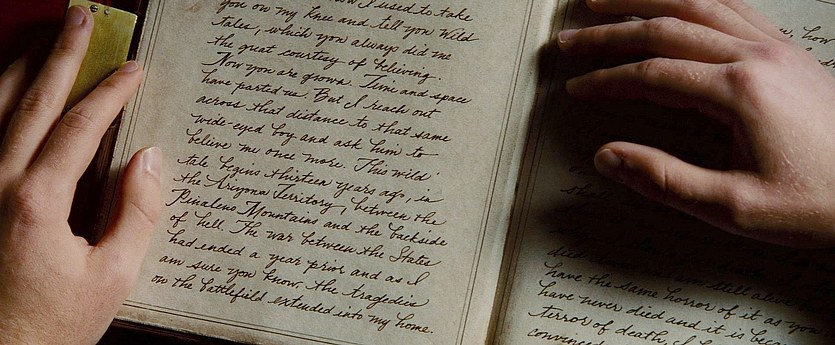 how I used to take
you on my knee and tell you Wild
tales, which you always did me
the great courtesy of believing.
Now you are grown. Time and space
have parted us. But I reach out
across that distance to that same
wide-eyed boy and ask him to
believe me once more. This wild
tale begins thirteen years ago, in
the Arizona Territory, between the
Pinaleno Mountains and the backside
of hell. The war between the States
had ended a year prior and as I
am sure you know, the tragedies
on the battlefield extended into my home.
how
died
am still alive
have the same horror of it as you
have never died and it is
terror of death, I